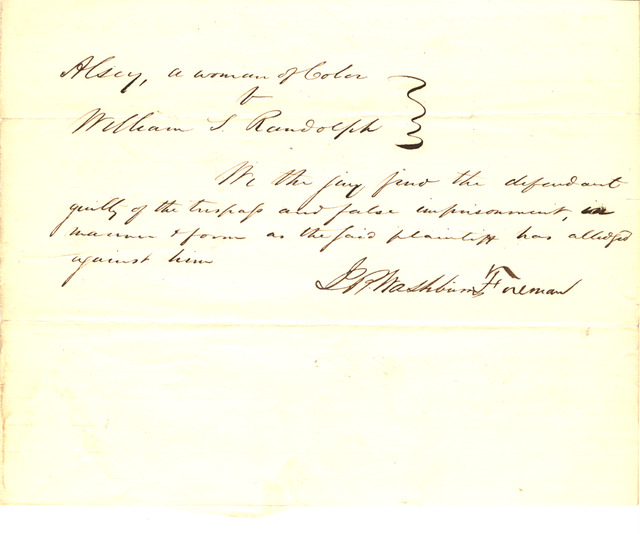 Alsey, a woman of Color
v
William S. Randolph
We the jury find the defendant
guilty of the trespass and false imprisonment, in
manner & form as the said plaintiff has alledged
against him
Washburn Foreman